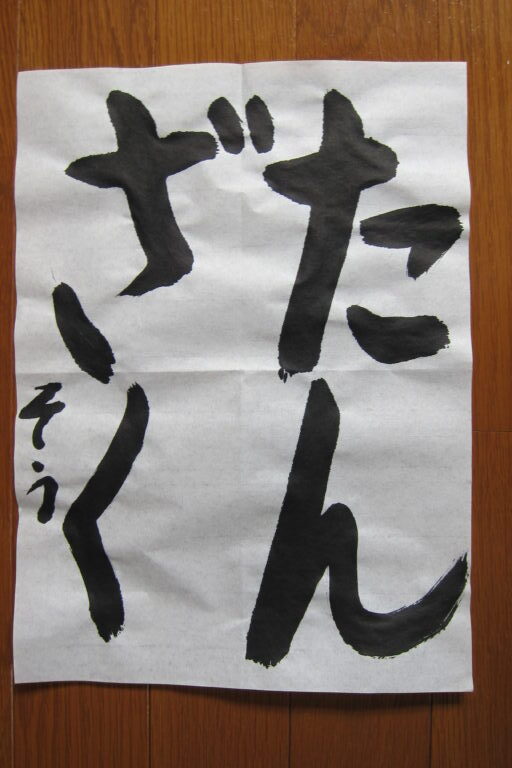 たん
ざく
そう